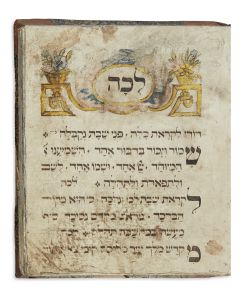 לכה
דודי לקראת כלה, פני שבת נקבלה
שמור וזכור בדבור אחד, השמיענו
המיוחד, אחד, ושמו אחד,
ולתפארת ולתהלה לכה
לקראת שבת לכו ונלכה כי היא מקור
הברכה, מראש מקדם נסוכה סוף
מעשה במחשבה תחלה
מקדש מלך עיר מלוכה קומי